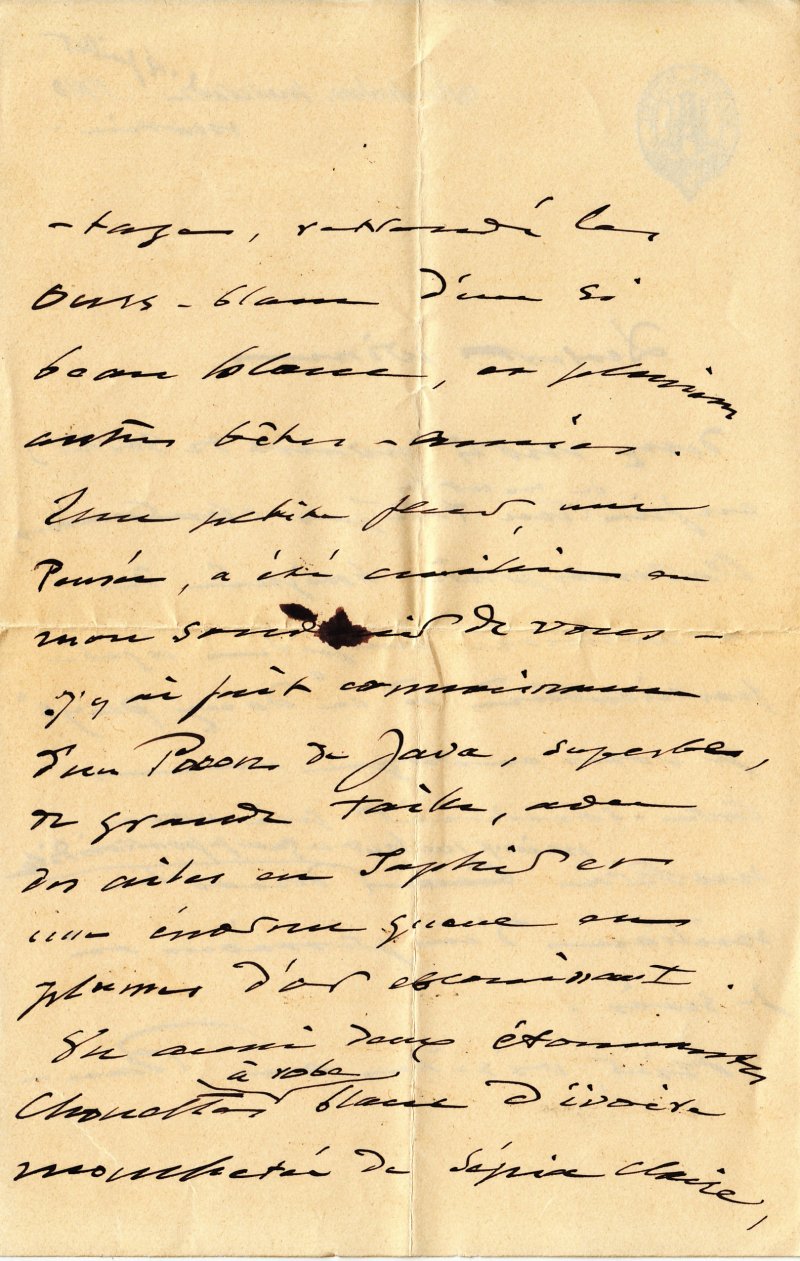 -tages, retrouvé les
Ours-blancs d'un si
beau blanc, et plusieurs
autres bêtes-amies.
Une petite fleur, une
Pensée, a été cueillie en
mon souvenir de vous -
J'y ai fait connaissance
d'un Paon de Java, superbe,
de grande taille, avec
des ailes en Saphir et
une énorme queue en
plumes d'or éblouissant.
Vu aussi deux étonnantes
Chouettes à robe blanc d'ivoire
moucheté de Sépia claire,